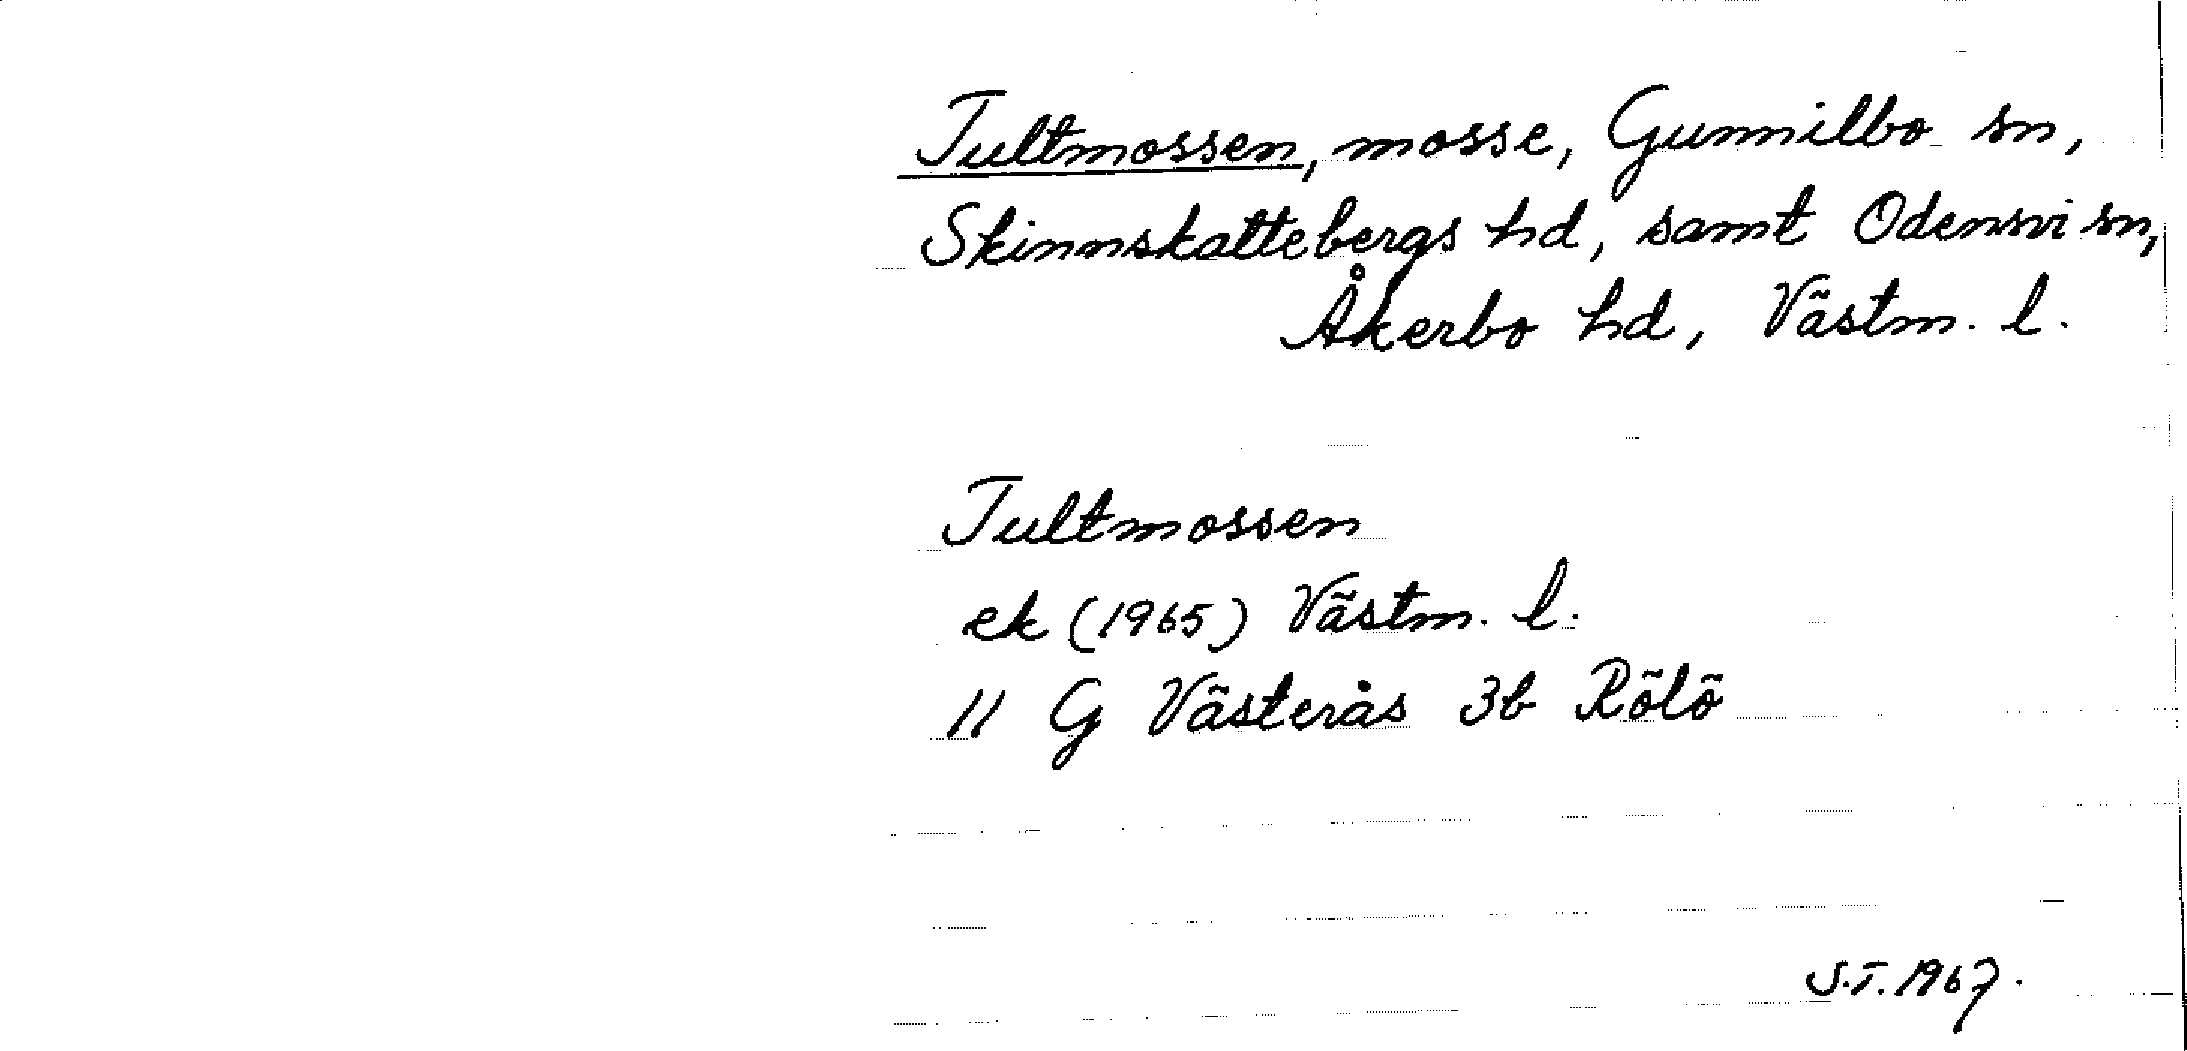 Tultmossen, mosse, Gunnilbo sn,
Skinnskattebergs hd, samt Odensvi sn,
Åkerbo hd, Västm. l.
Tultmossen
ek (1965) Västm. l.
11 G Västerås 3b Rölö
S.T. 1967.